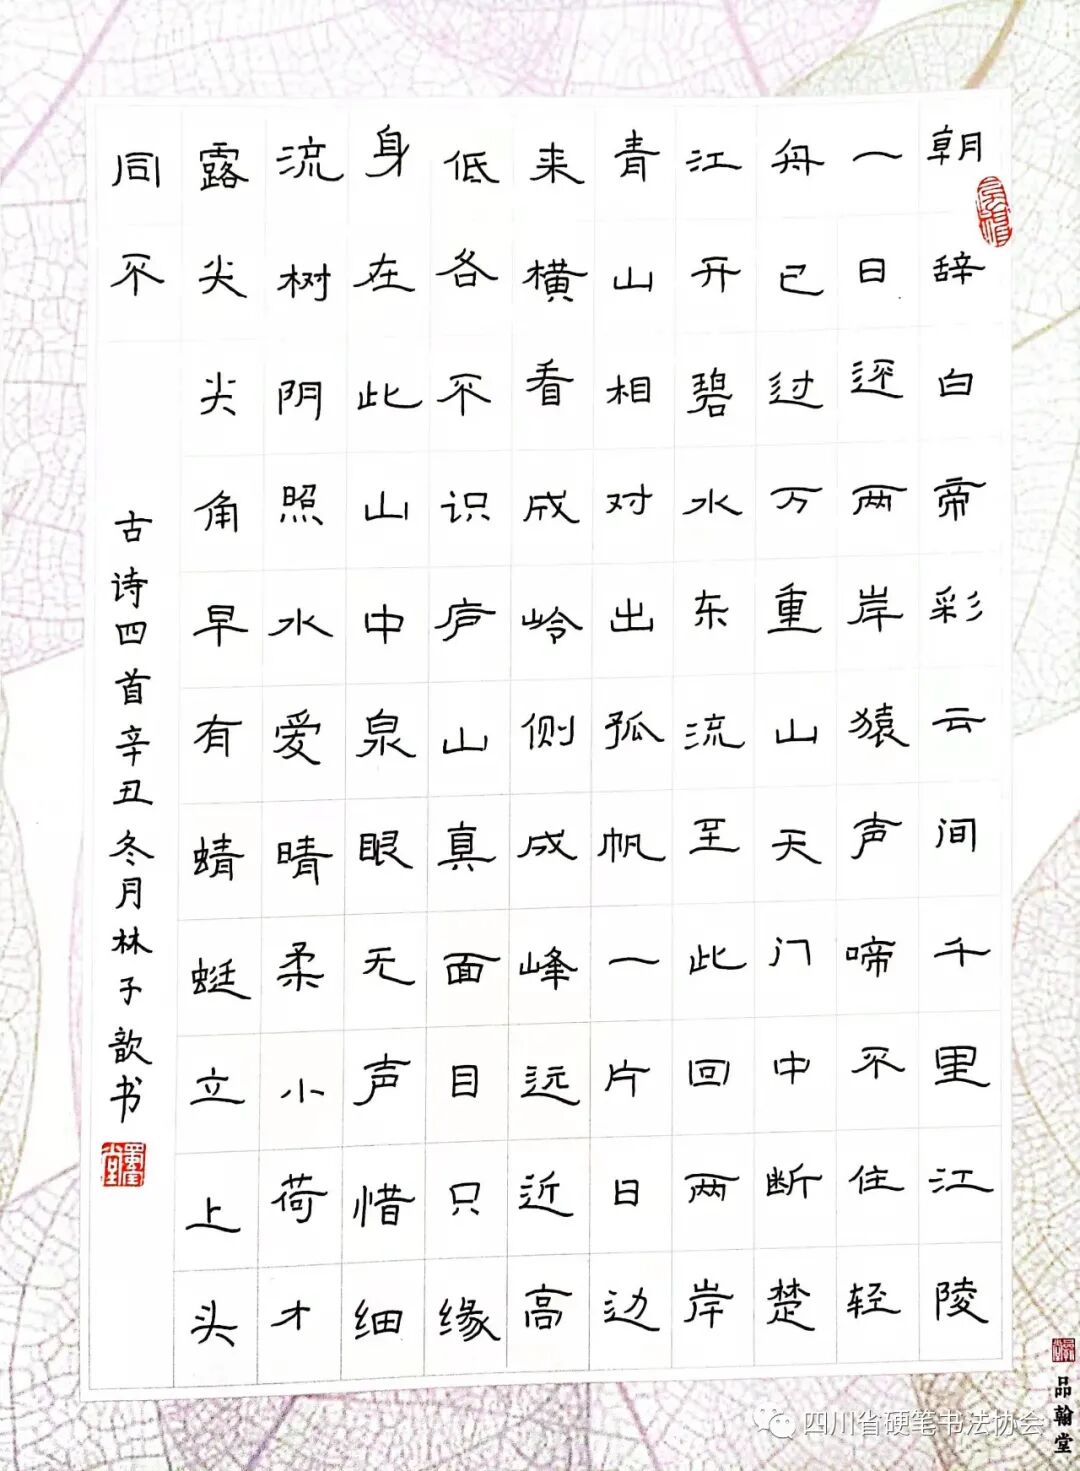 朝辞白帝彩云间千里江陵
一日还两岸猿声啼不住轻
舟已过万重山天门中断楚
江开碧水东流至此回两岸
青山相对出孤帆一片日边
来横看成岭侧成峰远近高
低各不识庐山真面目只缘
身在此山中泉眼无声惜细
流树阴照水爱晴柔小荷才
露尖尖角早有蜻蜓立上头
同不
古诗四首辛丑冬月林子歆书
品翰堂
四川省硬笔书法协会